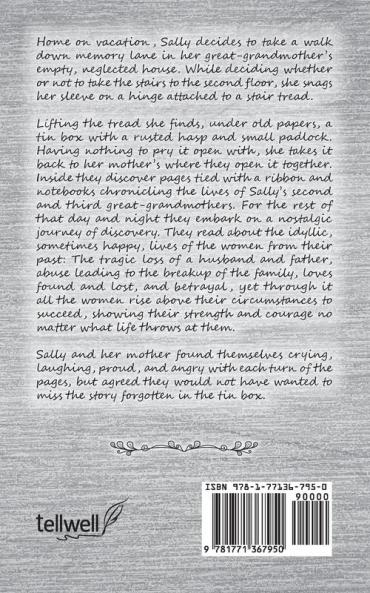 Home on vacation, Sally decides to take a walk
down memory lane in her great-grandmother's
empty, neglected house. While deciding whether
or not to take the stairs to the second floor, she snags
her sleeve on a hinge attached to a stair tread.
Lifting the tread she finds, under old papers, a
tin box with a rusted hasp and small padlock.
Having nothing to pry it open with, she takes it
back to her mother's where they open it together.
Inside they discover pages tied with a ribbon and
notebooks chronicling the lives of Sally's second
and third great-grandmothers. For the rest of
that day and night they embark on a nostalgic
journey of discovery. They read about the idyllic,
sometimes happy, lives of the women from their
past: The tragic loss of a husband and father,
abuse leading to the breakup of the family, loves
found and lost, and betrayal, yet through it
all the women rise above their circumstances to
succeed, showing their strength and courage no
matter what life throws at them.
Sally and her mother found themselves crying,
laughing, proud, and angry with each turn of the
pages, but agreed they would not have wanted to
miss the story forgotten in the tin box.
tellwell
ISBN 978-1-77136-795-0
90000
9 781771 367950